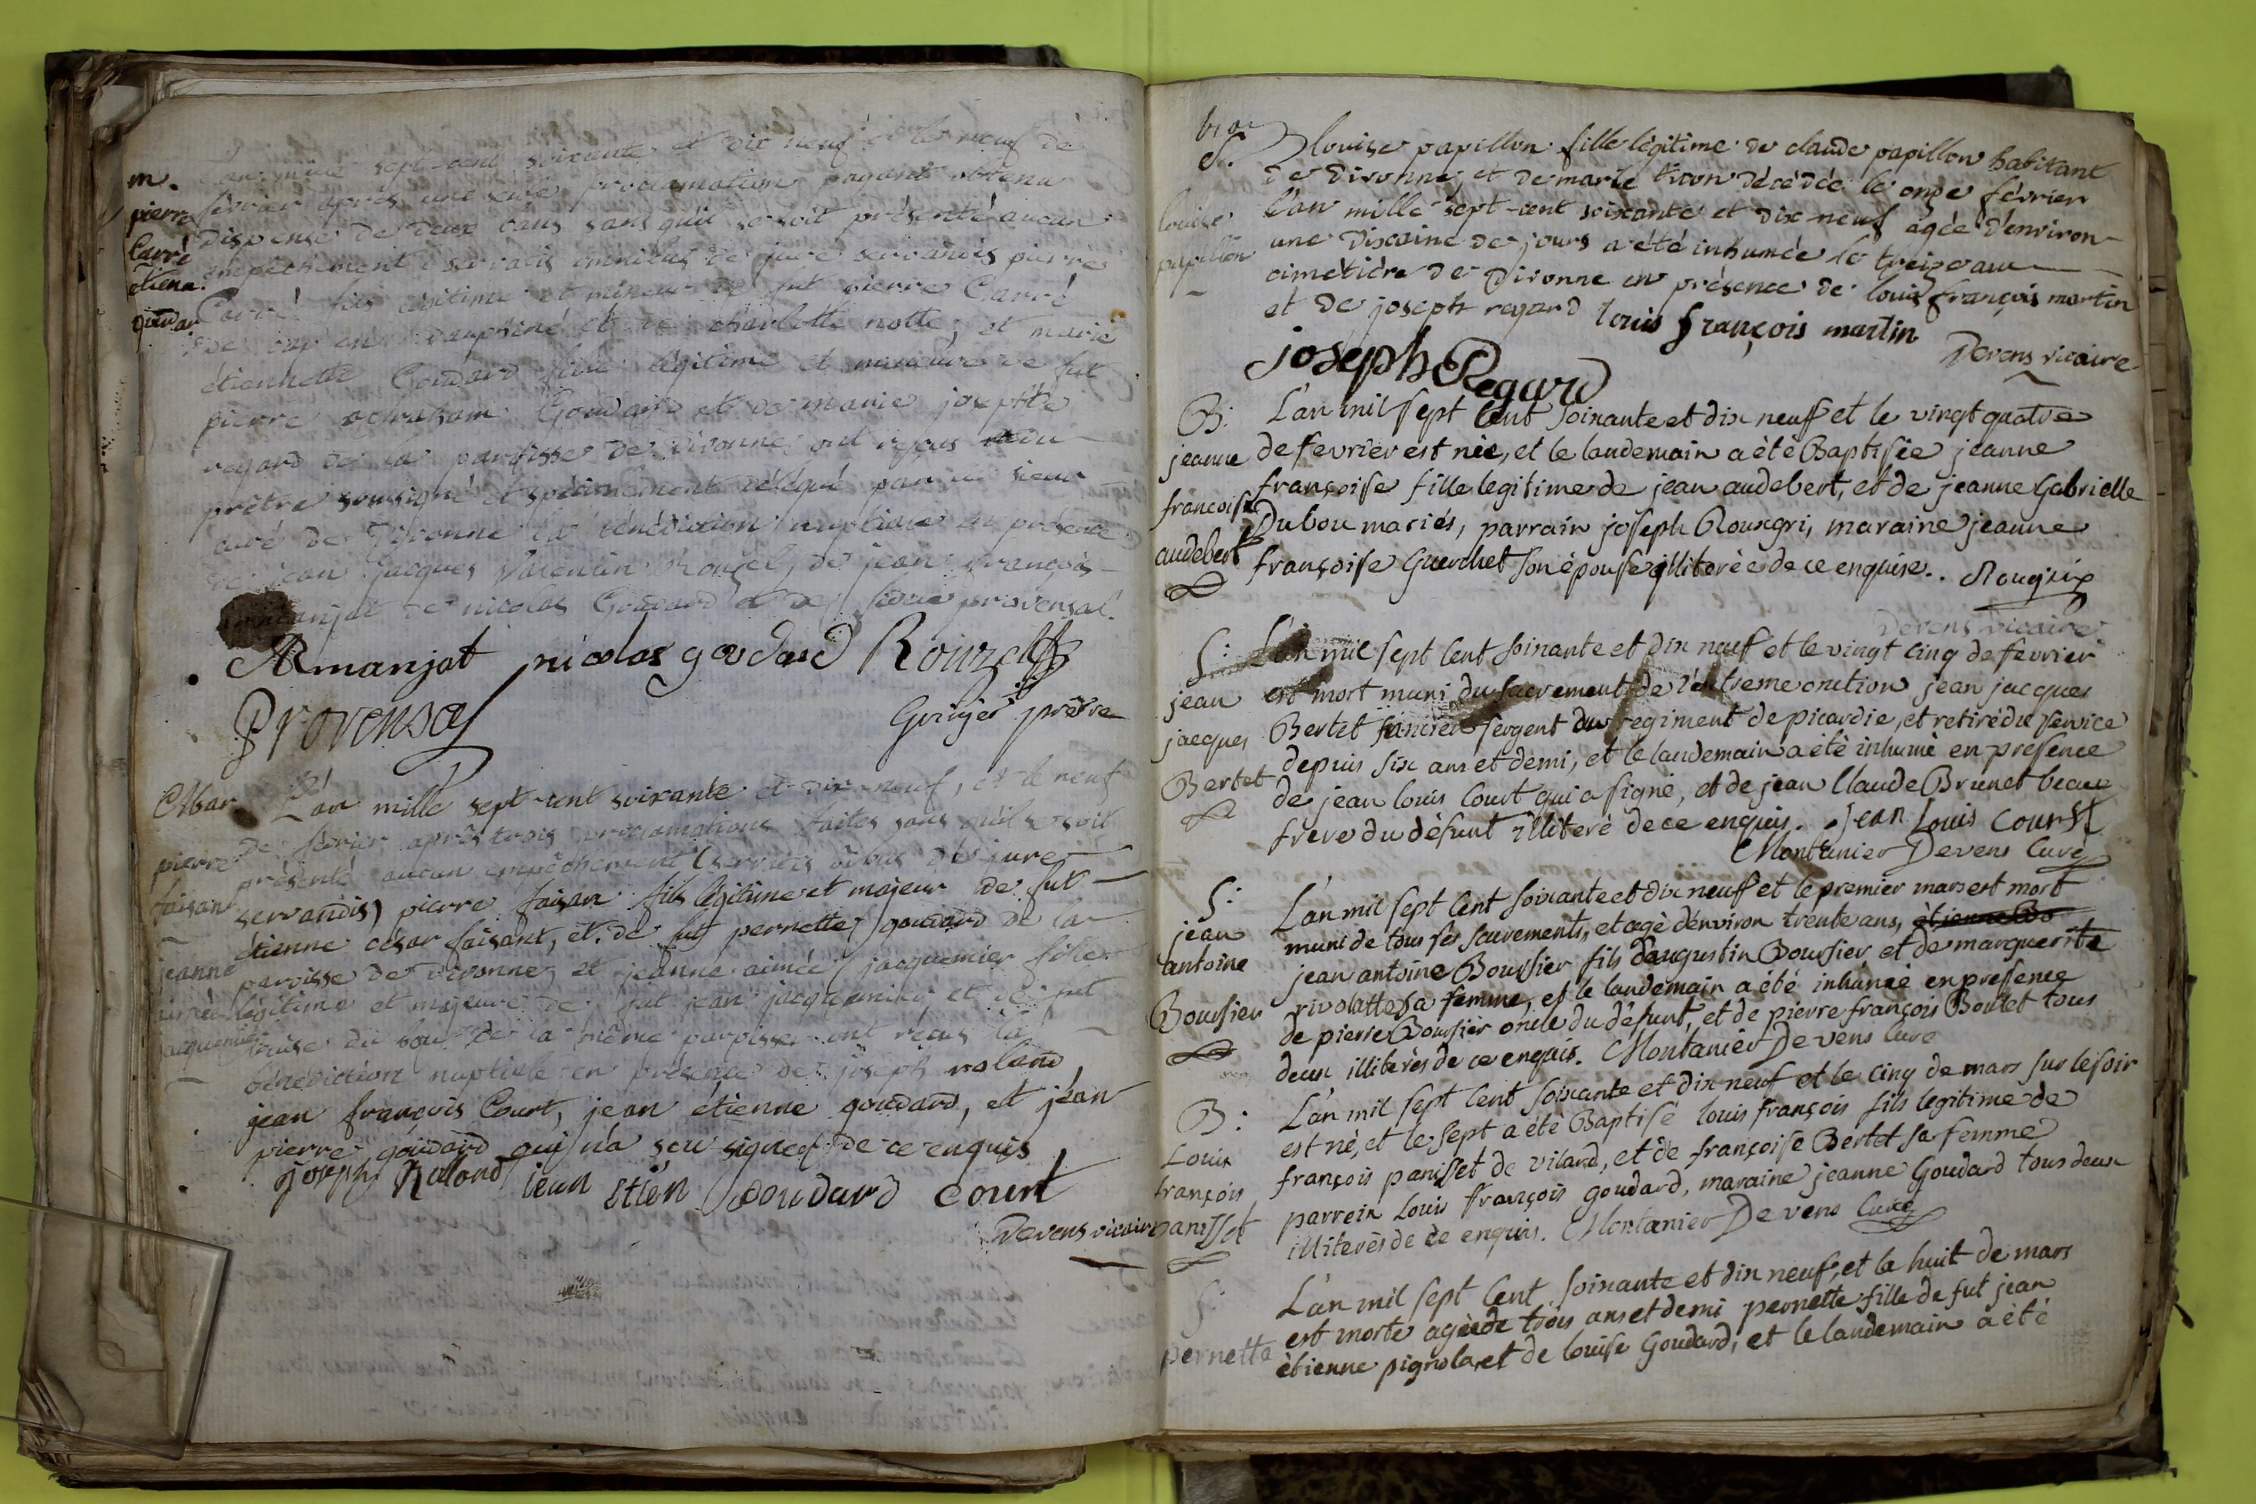 m.
pierre
Carré
étiena.
goudar
L'an mille sept-cent soixante et dix neuf et le neuf de
février après une seule proclamation payant obtenu
dispense de deux bans sans qu'il se soit présenté aucun
empêchement servatis omnibus de jure servandis pierre
Carré fils légitime et mineur de fut pierre Carré
de gap en dauphiné et de charlotte notte, et marie
étiennette Goudard fille légitime et mineure de fut
pierre abraham Goudard et de marie josephte
regard de la paroisse de divonne ont reçus du
prêtre soussigné et spécialement délégué par le sieur
curé de Divonne la bénédiction nuptiale en présence
de jean jacques Valentin Rouzel, de jean françois
armanjat de nicolas Goudard et de pierre provensal.
ARmanjat nicolas goudard Rouzel
Provensal prêtre
C Mar
pierre
faisant
jeanne
aimée
jacquemier
L'an mille sept-cent soixante et dix-neuf, et le neuf
de février après trois proclamations faites sans qu'il se soit
présenté aucun empêchement (servatis oïbus de jure
servandis) pierre faisan fils légitime et majeur de fut
étienne césar faisant, et de fut pernette goudard de la
paroisse de divonne et jeanne aimée jacquemier fille
légitime et majeure de fut jean jacquemier et de fut
louise du bou de la même paroisse ont reçus la
bénédiction nuptiale en présence de joseph roland,
jean françois Court, jean étienne goudard, et jean
pierre goudard qui n'a seu signer de ce enquis
joseph Roland jean étien Goudard court
Devens vicaire
S.
louise
papillon
louise papillon fille légitime de claude papillon habitant
de Divonne et de marie tiron décédée le onze février
l'an mille sept-cent soixante et dix-neuf agée d'environ
une dixaine de jours a été inhumée le treize au
cimétière de Divonne en présence de louis françois martin
et de joseph regard louis françois martin
joseph Regard Devens vicaire
B:
jeanne
francoise
audebert
L'an mil sept Cent soixante et dix neuff et le vingt quatre
de fevrier est née, et le landemain a été Baptisée jeanne
françoise fille legitime de jean audebert, et de jeanne Gabrielle
Dubou mariés, parrain joseph Rougri, maraine jeanne
françoise Guerchet son épouse illiterée de ce enquise.. Rougrix
Devens vicaire
S:
jean
jacques
Bertet
L'an mil sept Cent soixante et dix neuff et le vingt Cinq de fevrier
est mort muni du sacrement de l'extreme onction jean jacques
Bertet sergent du regiment de picardie, et retiré du service
depuis six ans et demi, et le landemain a été inhumé en presence
de jean louis Court qui a signé, et de jean Claude Brunet beau
frere du défunt illiteré de ce enquis. Jean Louis Court
Montanier Devens Curé
S:
jean
antoine
Boursier
L'an mil sept Cent soixante et dix neuff et le premier mars est mort
muni de tous ses sacrements, et agé d'environ trente ans, étienne Bo
jean antoine Boursier fils d'augustin Boursier et de marguerite
rivolatte sa femme, et le landemain a été inhumé en presence
de pierre Boursier oncle du défunt, et de pierre françois Boutet tous
deux illiterés de ce enquis. Montanier Devens Curé
B:
Louis
françois
panisset
L'an mil sept Cent soixante et dix neuf et le Cinq de mars sur le soir
est né, et le sept a été Baptisé louis françois fils legitime de
françois panisset de vilard, et de françoise Bertet sa femme
parrein Louis françois goudard, maraine jeanne Goudard tous deux
illiterés de ce enquis. Montanier Devens Curé
S:
pernette
L'an mil sept Cent soixante et dix neuf, et le huit de mars
est morte agée de trois ans et demi pernette fille de fut jean
étienne pignola, et de louise Goudard, et le landemain a été